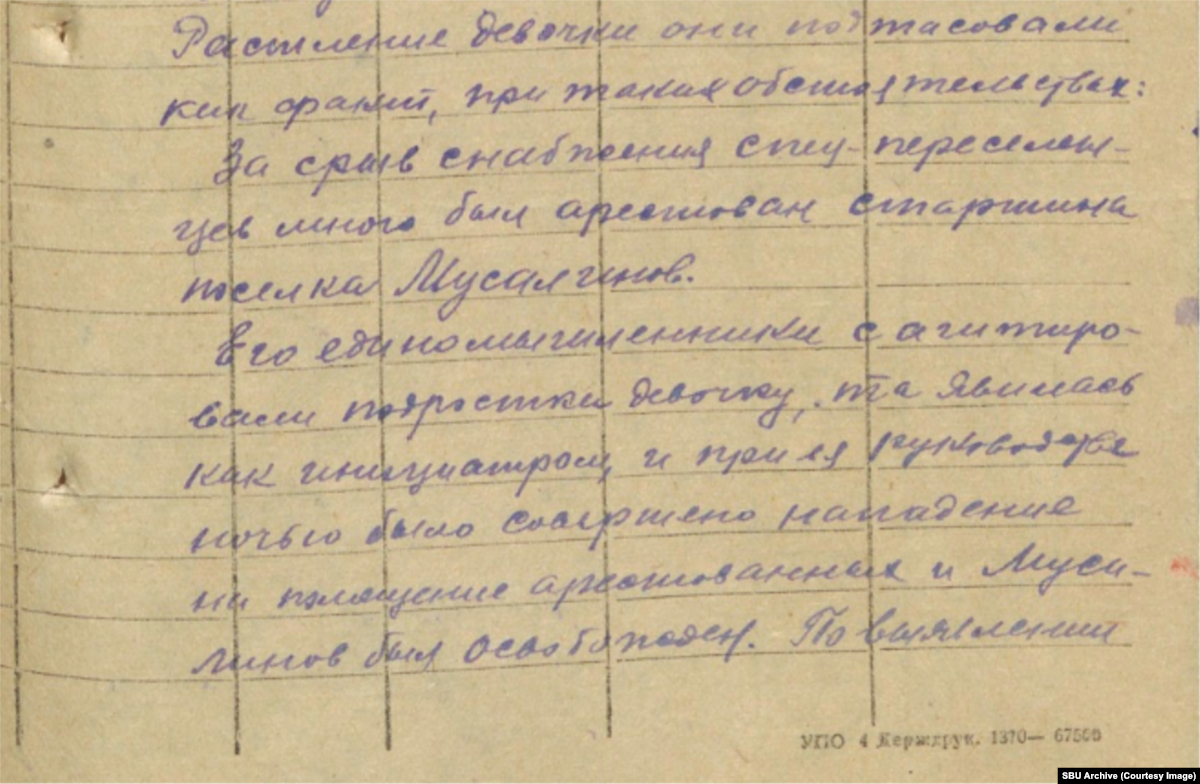 Растление девочки они подтасовали
как факт, при таких обстоятельствах:
За срыв снабжения спец-переселен-
цев много был арестован старшина
поселка Мусалгинов.
Его единомышленники сагитиро-
вали подростка девочку, та явилась
как инициатром, и при ея руководстве
ночью было совершено нападение
на помещение арестованных и Муса-
линов был освобожден. По выявлении
УПО 4 Кержрук. 1370— 67500
SBU Archive (Courtesy Image)